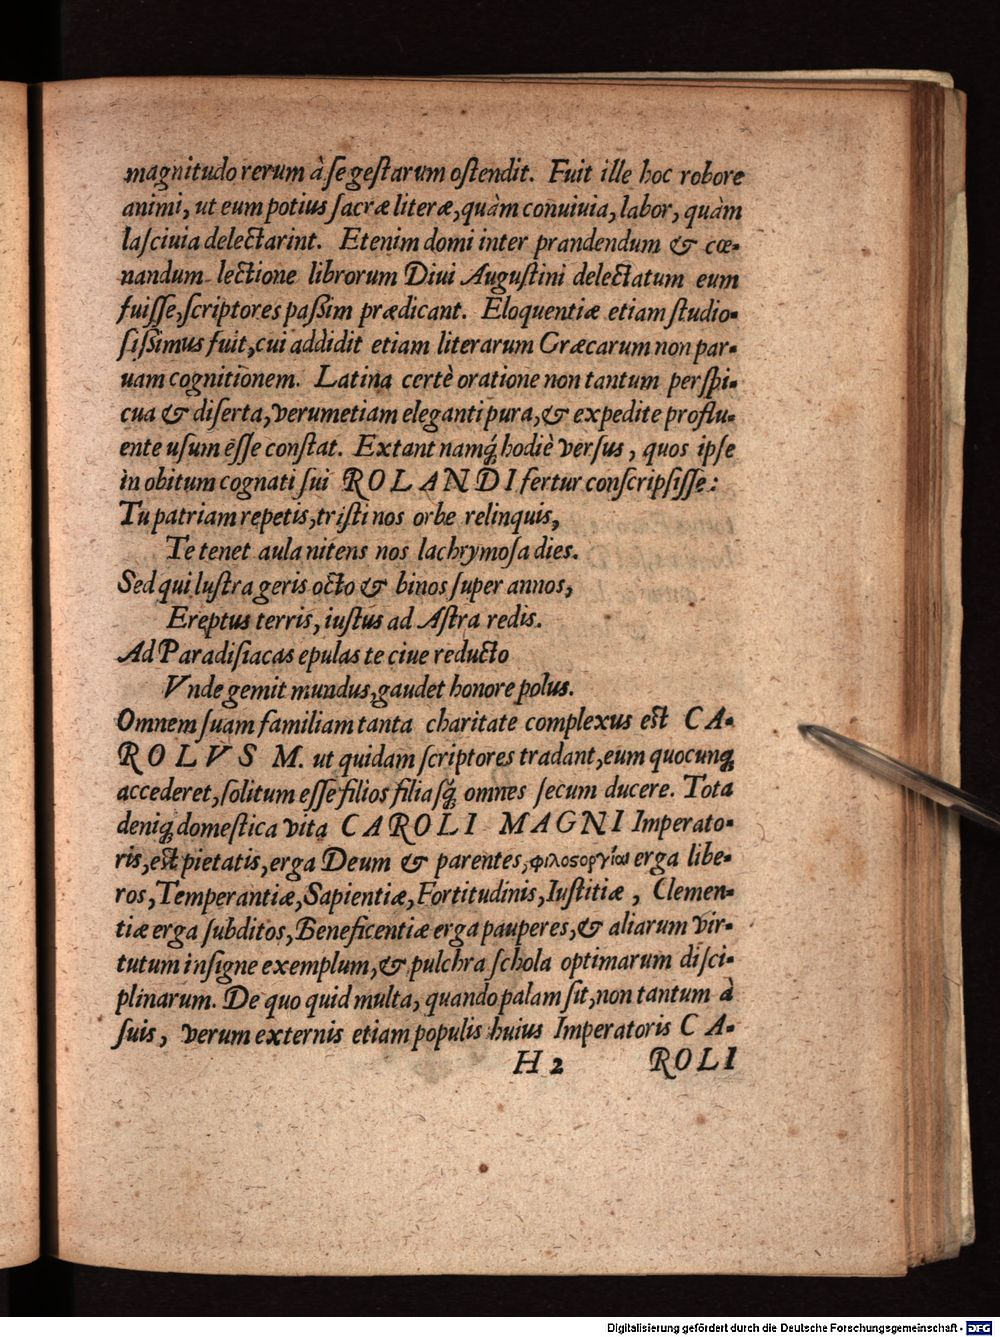 magnitudo rerum à ſe geſtarum oſtendit. Fuit ille hoc robore
animi, ut eum potius ſacræ literæ, quàm conuiuia, labor, quàm
laſciuia delectarint. Etenim domi inter prandendum & cœ-
nandum lectione librorum Diui Auguſtini delectatum eum
fuiſſe, ſcriptores paßim prædicant. Eloquentiæ etiam ſtudio-
ſißimus fuit, cui addidit etiam literarum Græcarum non par-
uam cognitionem. Latina certè oratione non tantum perſpi-
cua & diſerta, verumetiam eleganti pura, & expedite proflu-
ente uſum eſſe conſtat. Extant namq́; hodiè verſus, quos ipſe
in obitum cognati ſui ROLANDI fertur conſcripſiſſe:
Tu patriam repetis, triſti nos orbe relinquis,
Te tenet aula nitens nos lachrymoſa dies.
Sed qui luſtra geris octo & binos ſuper annos,
Ereptus terris, iuſtus ad Aſtra redis.
Ad Paradiſiacas epulas te ciue reducto
Vnde gemit mundus, gaudet honore polus.
Omnem ſuam familiam tanta charitate complexus eſt CA-
ROLVS M. ut quidam ſcriptores tradant, eum quocunq;
accederet, ſolitum eſſe filios filiaſq́; omnes ſecum ducere. Tota
deniq; domeſtica vita CAROLI MAGNI Imperato-
ris, eſt pietatis, erga Deum & parentes, φιλοϛοργίας erga libe-
ros, Temperantiæ, Sapientiæ, Fortitudinis, Iuſtitiæ, Clemen-
tiæ erga ſubditos, Beneficentiæ erga pauperes, & aliarum vir-
tutum inſigne exemplum, & pulchra ſchola optimarum diſci-
plinarum. De quo quid multa, quando palam ſit, non tantum à
ſuis, verum externis etiam populis huius Imperatoris CA-
H 2 ROLI
Digitalisierung gefördert durch die Deutsche Forschungsgemeinschaft - DFG